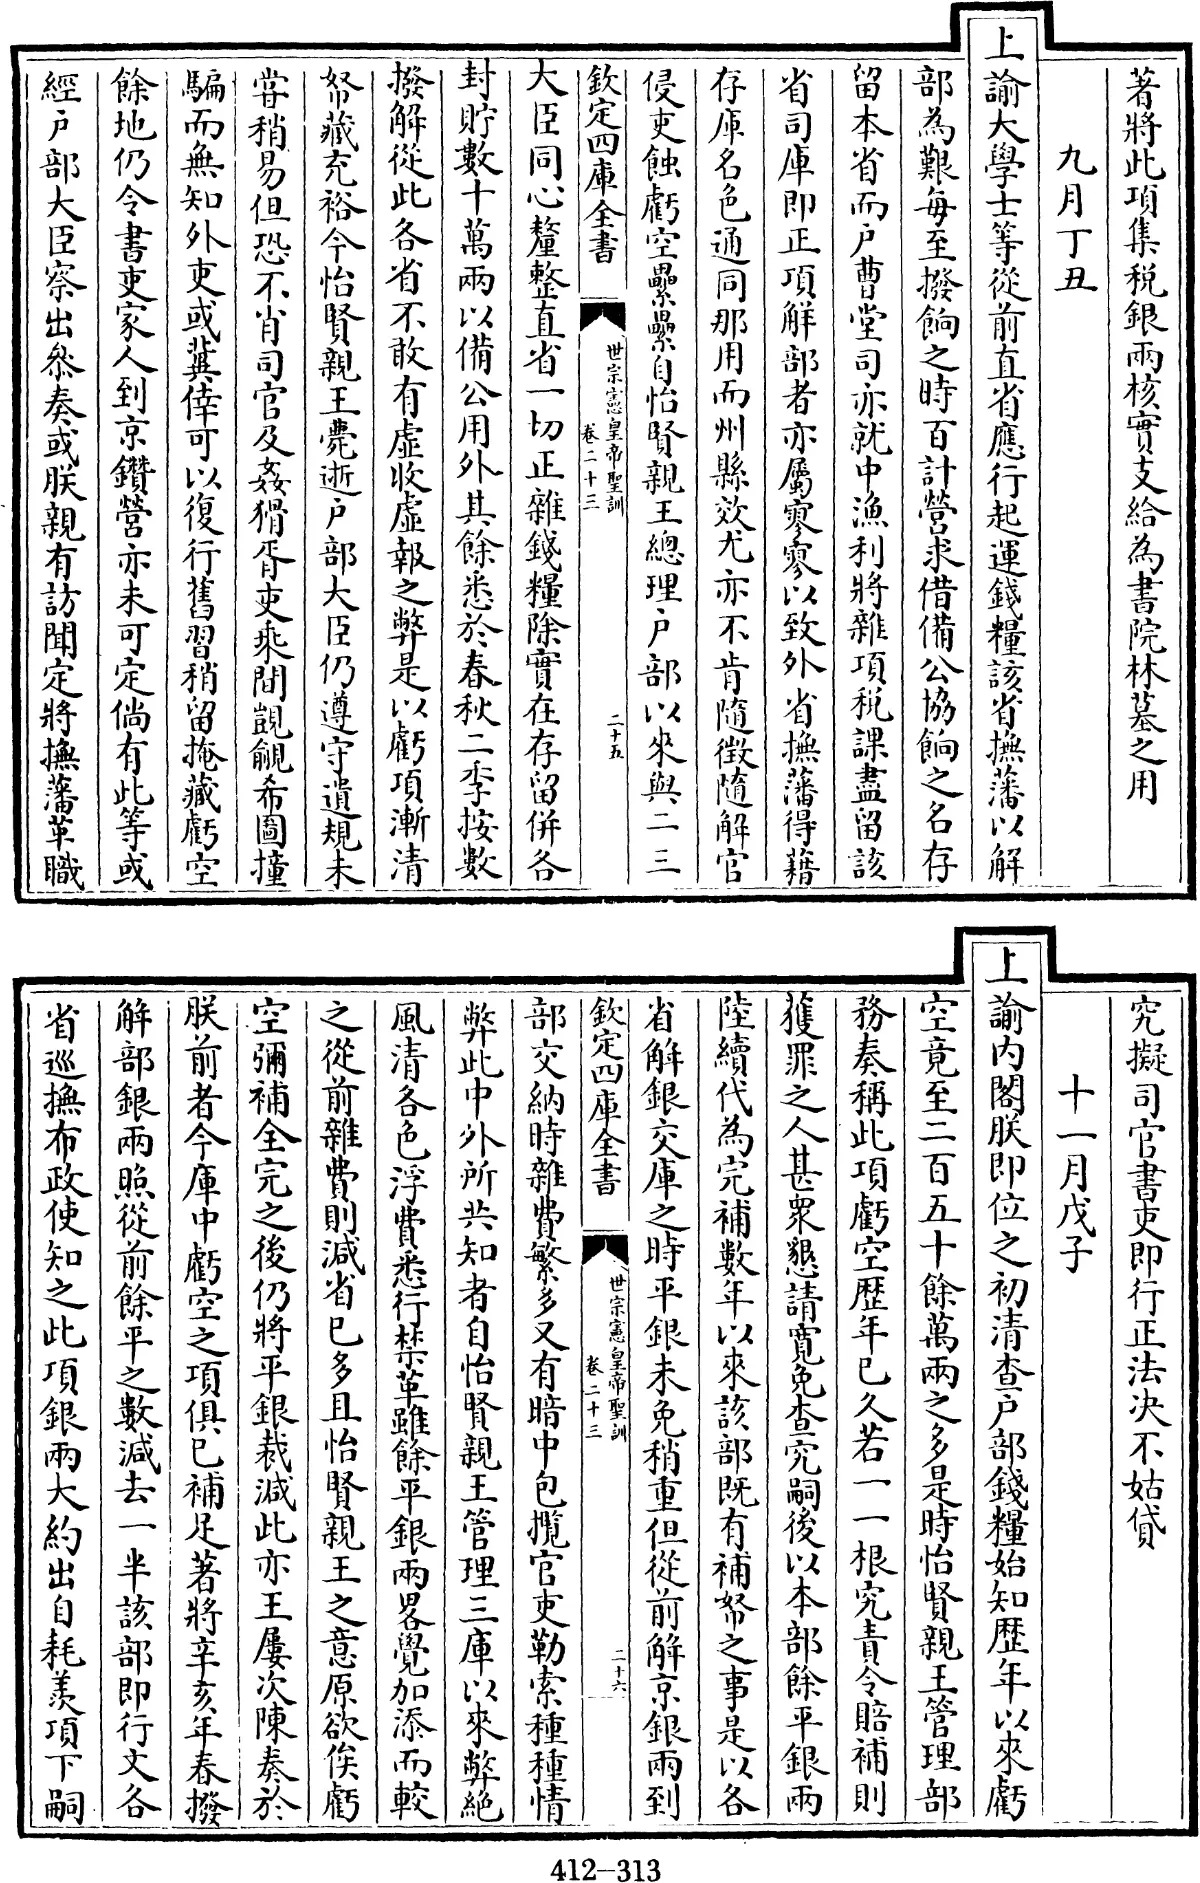 著將此項集稅銀兩核實支給為書院林墓之用
九月丁丑
上諭大學士等從前直省應行起運錢糧該省撫藩以解
部為艱每至撥餉之時百計營求借備公協餉之名存
留本省而戶曹堂司亦就中漁利將雜項稅課盡留該
省司庫即正項解部者亦屬寥寥以致外省撫藩得藉
存庫名色通同那用而州縣效尤亦不肯隨徵隨解官
侵吏蝕虧空纍纍自怡賢親王總理戶部以來與二三
欽定四庫全書
世宗憲皇帝聖訓
卷二十三
二十五
大臣同心釐整直省一切正雜錢糧除實在存留併各
封貯數十萬兩以備公用外其餘悉於春秋二季按數
撥解從此各省不敢有虛收虛報之弊是以虧項漸清
帑藏充裕今怡賢親王薨逝戶部大臣仍遵守遺規未
嘗稍易但恐不肖司官及姦猾胥吏乘間覬覦希圖撞
騙而無知外吏或冀倖可以復行舊習稍留掩藏虧空
餘地仍令書吏家人到京鑽營亦未可定倘有此等或
經戶部大臣察出叅奏或朕親有訪聞定將撫藩革職
究擬司官書吏即行正法決不姑貸
十一月戊子
上諭內閣朕即位之初清查戶部錢糧始知歷年以來虧
空竟至二百五十餘萬兩之多是時怡賢親王管理部
務奏稱此項虧空歷年已久若一一根究責令賠補則
獲罪之人甚衆懇請寬免查究嗣後以本部餘平銀兩
陸續代為完補數年以來該部既有補帑之事是以各
省解銀交庫之時平銀未免稍重但從前解京銀兩到
欽定四庫全書
世宗憲皇帝聖訓
卷二十三
二十六
部交納時雜費繁多又有暗中包攬官吏勒索種種情
弊此中外所共知者自怡賢親王管理三庫以來弊絕
風清各色浮費悉行禁革雖餘平銀兩畧覺加添而較
之從前雜費則減省已多且怡賢親王之意原欲俟虧
空彌補全完之後仍將平銀裁減此亦王屢次陳奏於
朕前者今庫中虧空之項俱已補足著將辛亥年春撥
解部銀兩照從前餘平之數減去一半該部即行文各
省巡撫布政使知之此項銀兩大約出自耗羨項下嗣
412-313